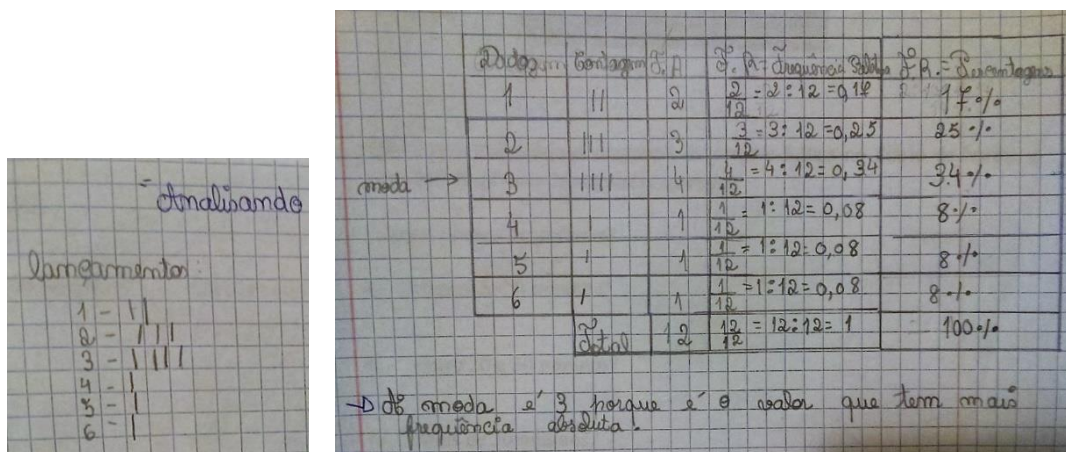 = Analisando
Lançamentos:
1 - ||
2 - |||
3 - ||||
4 - |
5 - |
6 - |
Contagem F.A F.R = Frequência F.R. = Porcentagem
1 || 2 2/12 = 2:12 = 0,17 17%
2 ||| 3 3/12 = 3:12 = 0,25 25%
moda → 3 |||| 4 4/12 = 4:12 = 0,34 34%
4 | 1 1/12 = 1:12 = 0,08 8%
5 | 1 1/12 = 1:12 = 0,08 8%
6 | 1 1/12 = 1:12 = 0,08 8%
Total 12 12/12 = 12:12 = 1 100%
→ A moda é 3 porque é o valor que tem mais
frequência absoluta.